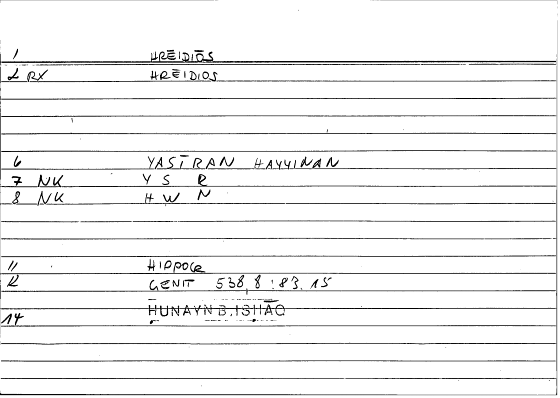 1 HRĒIDIŌS
2 RX HRĒIDIOS
6 YASĪRAN HAYYINAN
7 NK Y S R
8 NK H W N
11 HIPPOCR
12 GENIT 538,8 : 83.15
14 ḤUNAYN B. ISḤĀQ